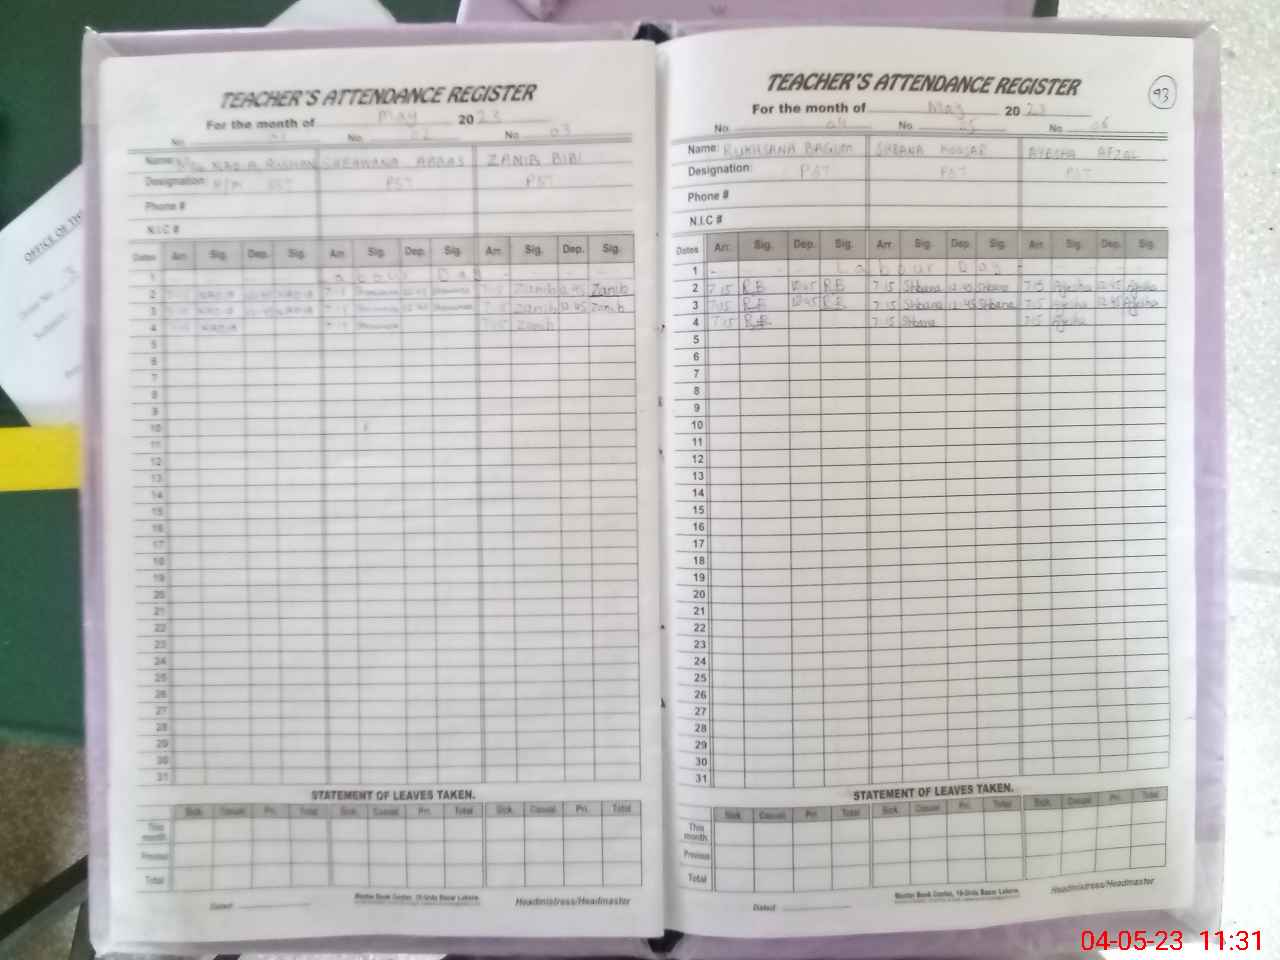 TEACHER'S ATTENDANCE REGISTER
For the month of May 2023
No. 01 No. 02 No. 03
Name: SHRAWANA ABBAS ZANIB BIBI
Designation: PST PST
Phone #
N.I.C #
Dates Arr. Sig. Dep. Sig. Arr. Sig. Dep. Sig. Arr. Sig. Dep. Sig.
1 Labour Day
2 7:15 NADIA 12:45 NADIA 7:15 7:15 Zanib 12:45 Zanib
3 7:15 NADIA 12:45 NADIA 7:15 7:15 Zanib 12:45 Zanib
4 7:15 NADIA 7:15 7:15 Zanib
5
6
7
8
9
10
11
12
13
14
15
16
17
18
19
20
21
22
23
24
25
26
27
28
29
30
31
STATEMENT OF LEAVES TAKEN.
Sick. Casual Pri. Total Sick. Casual Pri. Total Sick. Casual Pri. Total
This month
Previous
Total
Master Book Center, 19-Urdu Bazar Lahore.
Dated: Headmistress/Headmaster
93
TEACHER'S ATTENDANCE REGISTER
For the month of May 2023
No. 04 No. 05 No. 06
Name: RUKHSANA BAGUM SHBANA KOUSAR AYESHA AFZAL
Designation: PST PST PST
Phone #
N.I.C #
Dates Arr. Sig. Dep. Sig. Arr. Sig. Dep. Sig. Arr. Sig. Dep. Sig.
1 Labour Day
2 7:15 RB 12:45 RB 7:15 Shbana 12:45 Shbana 7:15 Ayesha 12:45 Ayesha
3 7:15 RB 12:45 RB 7:15 Shbana 12:45 Shbana 7:15 Ayesha 12:45 Ayesha
4 7:15 RB 7:15 Shbana 7:15 Ayesha
5
6
7
8
9
10
11
12
13
14
15
16
17
18
19
20
21
22
23
24
25
26
27
28
29
30
31
STATEMENT OF LEAVES TAKEN.
Sick. Casual Pri. Total Sick. Casual Pri. Total Sick. Casual Pri. Total
This month
Previous
Total
Master Book Center, 19-Urdu Bazar Lahore.
Dated: Headmistress/Headmaster
OFFICE OF THE
04-05-23 11:31